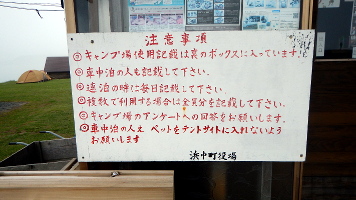 注意事項
◎キャンプ場使用記載は裏のボックスに入っています。
◎車中泊の人も記載して下さい。
◎連泊の時は毎日記載して下さい。
◎複数で利用する場合は全員分を記載して下さい。
◎キャンプ場のアンケートへの回答をお願いします。
◎車中泊の人も ペットをテントサイトに入れないよう
お願いします
浜中町役場